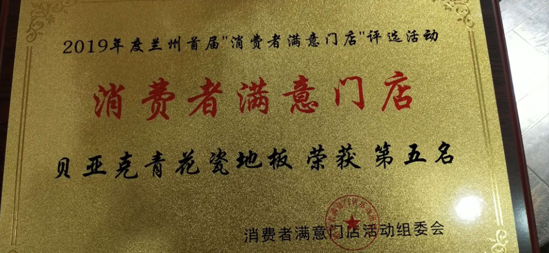 2019年度兰州首届"消费者满意门店"评选活动
消费者满意门店
贝亚克青花瓷地板 荣获 第五名
消费者满意门店活动组委会